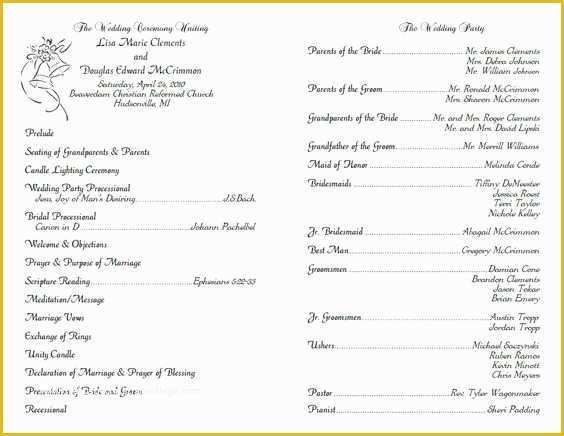 The Wedding Ceremony Uniting
Lisa Marie Clements
and
Douglas Edward McCrimmon
Saturday, April 24, 2010
Beaverdam Christian Reformed Church
Hudsonville, MI
Prelude
Seating of Grandparents & Parents
Candle Lighting Ceremony
Wedding Party Processional
Jesu, Joy of Man's Desiring.................................J.S.Bach
Bridal Processional
Canon in D.................................Johann Pachelbel
Welcome & Objections
Prayer & Purpose of Marriage
Scripture Reading.................................Ephesians 5:22-33
Meditation/Message
Marriage Vows
Exchange of Rings
Unity Candle
Declaration of Marriage & Prayer of Blessing
Presentation of Bride and Groom
Recessional
The Wedding Party
Parents of the Bride.................................Mr. James Clements
Mrs. Debra Johnson
Mr. William Johnson
Parents of the Groom.................................Mr. Ronald McCrimmon
Mrs. Sharon McCrimmon
Grandparents of the Bride.................................Mr. and Mrs. Roger Clements
Mr. and Mrs. David Lipski
Grandfather of the Groom.................................Mr. Merrill Williams
Maid of Honor.................................Melinda Conde
Bridesmaids.................................Tiffiny DeMeester
Jessica Roest
Terri Taylor
Nichole Kelley
Jr. Bridesmaid.................................Abagail McCrimmon
Best Man.................................Gregory McCrimmon
Groomsmen.................................Damian Cone
Brandon Clements
Jason Tokar
Brian Emery
Jr. Groomsmen.................................Austin Tropp
Jordan Tropp
Ushers.................................Michael Saczynski
Ruben Ramos
Kevin Minott
Chris Meyers
Pastor.................................Rev. Tyler Wagonmaker
Pianist.................................Sheri Padding